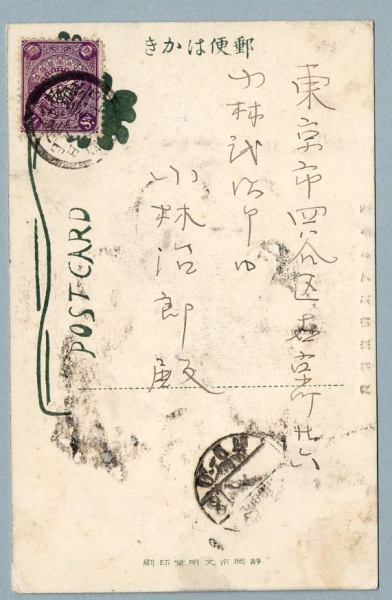 郵便はかき
東京市四谷区右京町廿六
小林武治郎内
小林治郎殿
POSTCARD
静岡市文明堂印刷